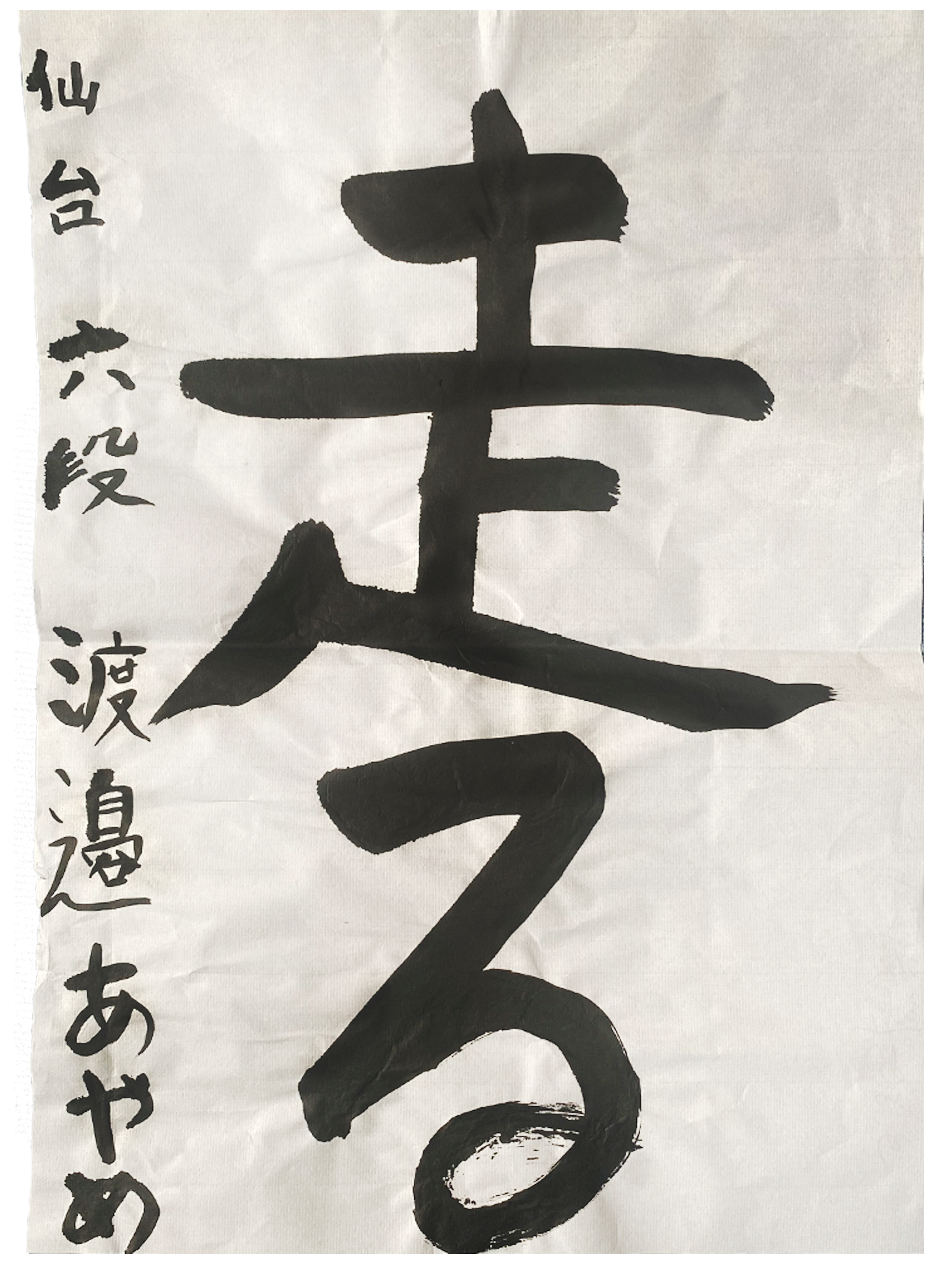 走る
仙台 六段 渡邉あやめ